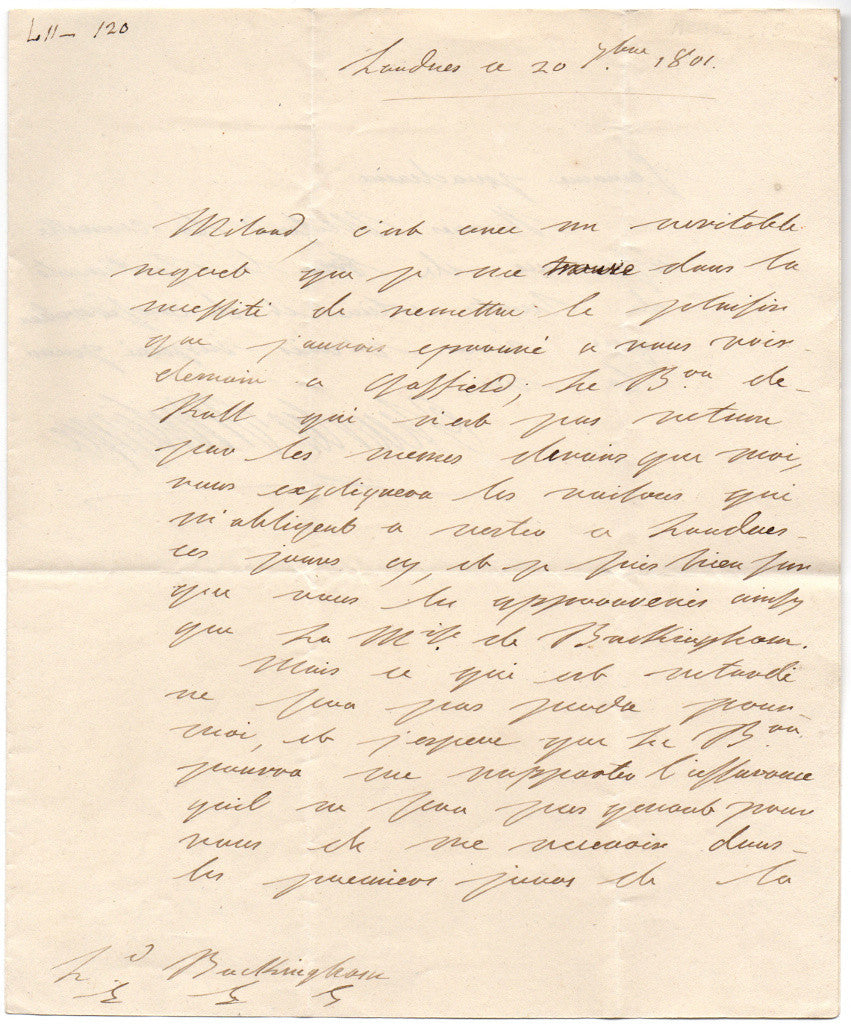 L11 — 120
Londres ce 20 7bre 1801.
Milord, c'est avec un veritable
regret que je me trouve dans la
necessité de remettre le plaisir
que j'aurois eprouvé a vous voir
demain a Gosfield; Le Bon de
Roll qui n'est pas retenu
par les memes devoirs que moi,
vous expliquera les raisons qui
m'obligent a rester a Londres
ces jours cy, et je suis bien sur
que vous les approuverés ainsy
que La Mise de Buckingham.
Mais ce qui est retardé
ne sera pas perdu pour
moi, et j'espere que Le Bon
pourra me rapporter l'assurance
qu'il ne sera pas genant pour
vous de me recevoir dans
les premiers jours de la
Ld Buckingham